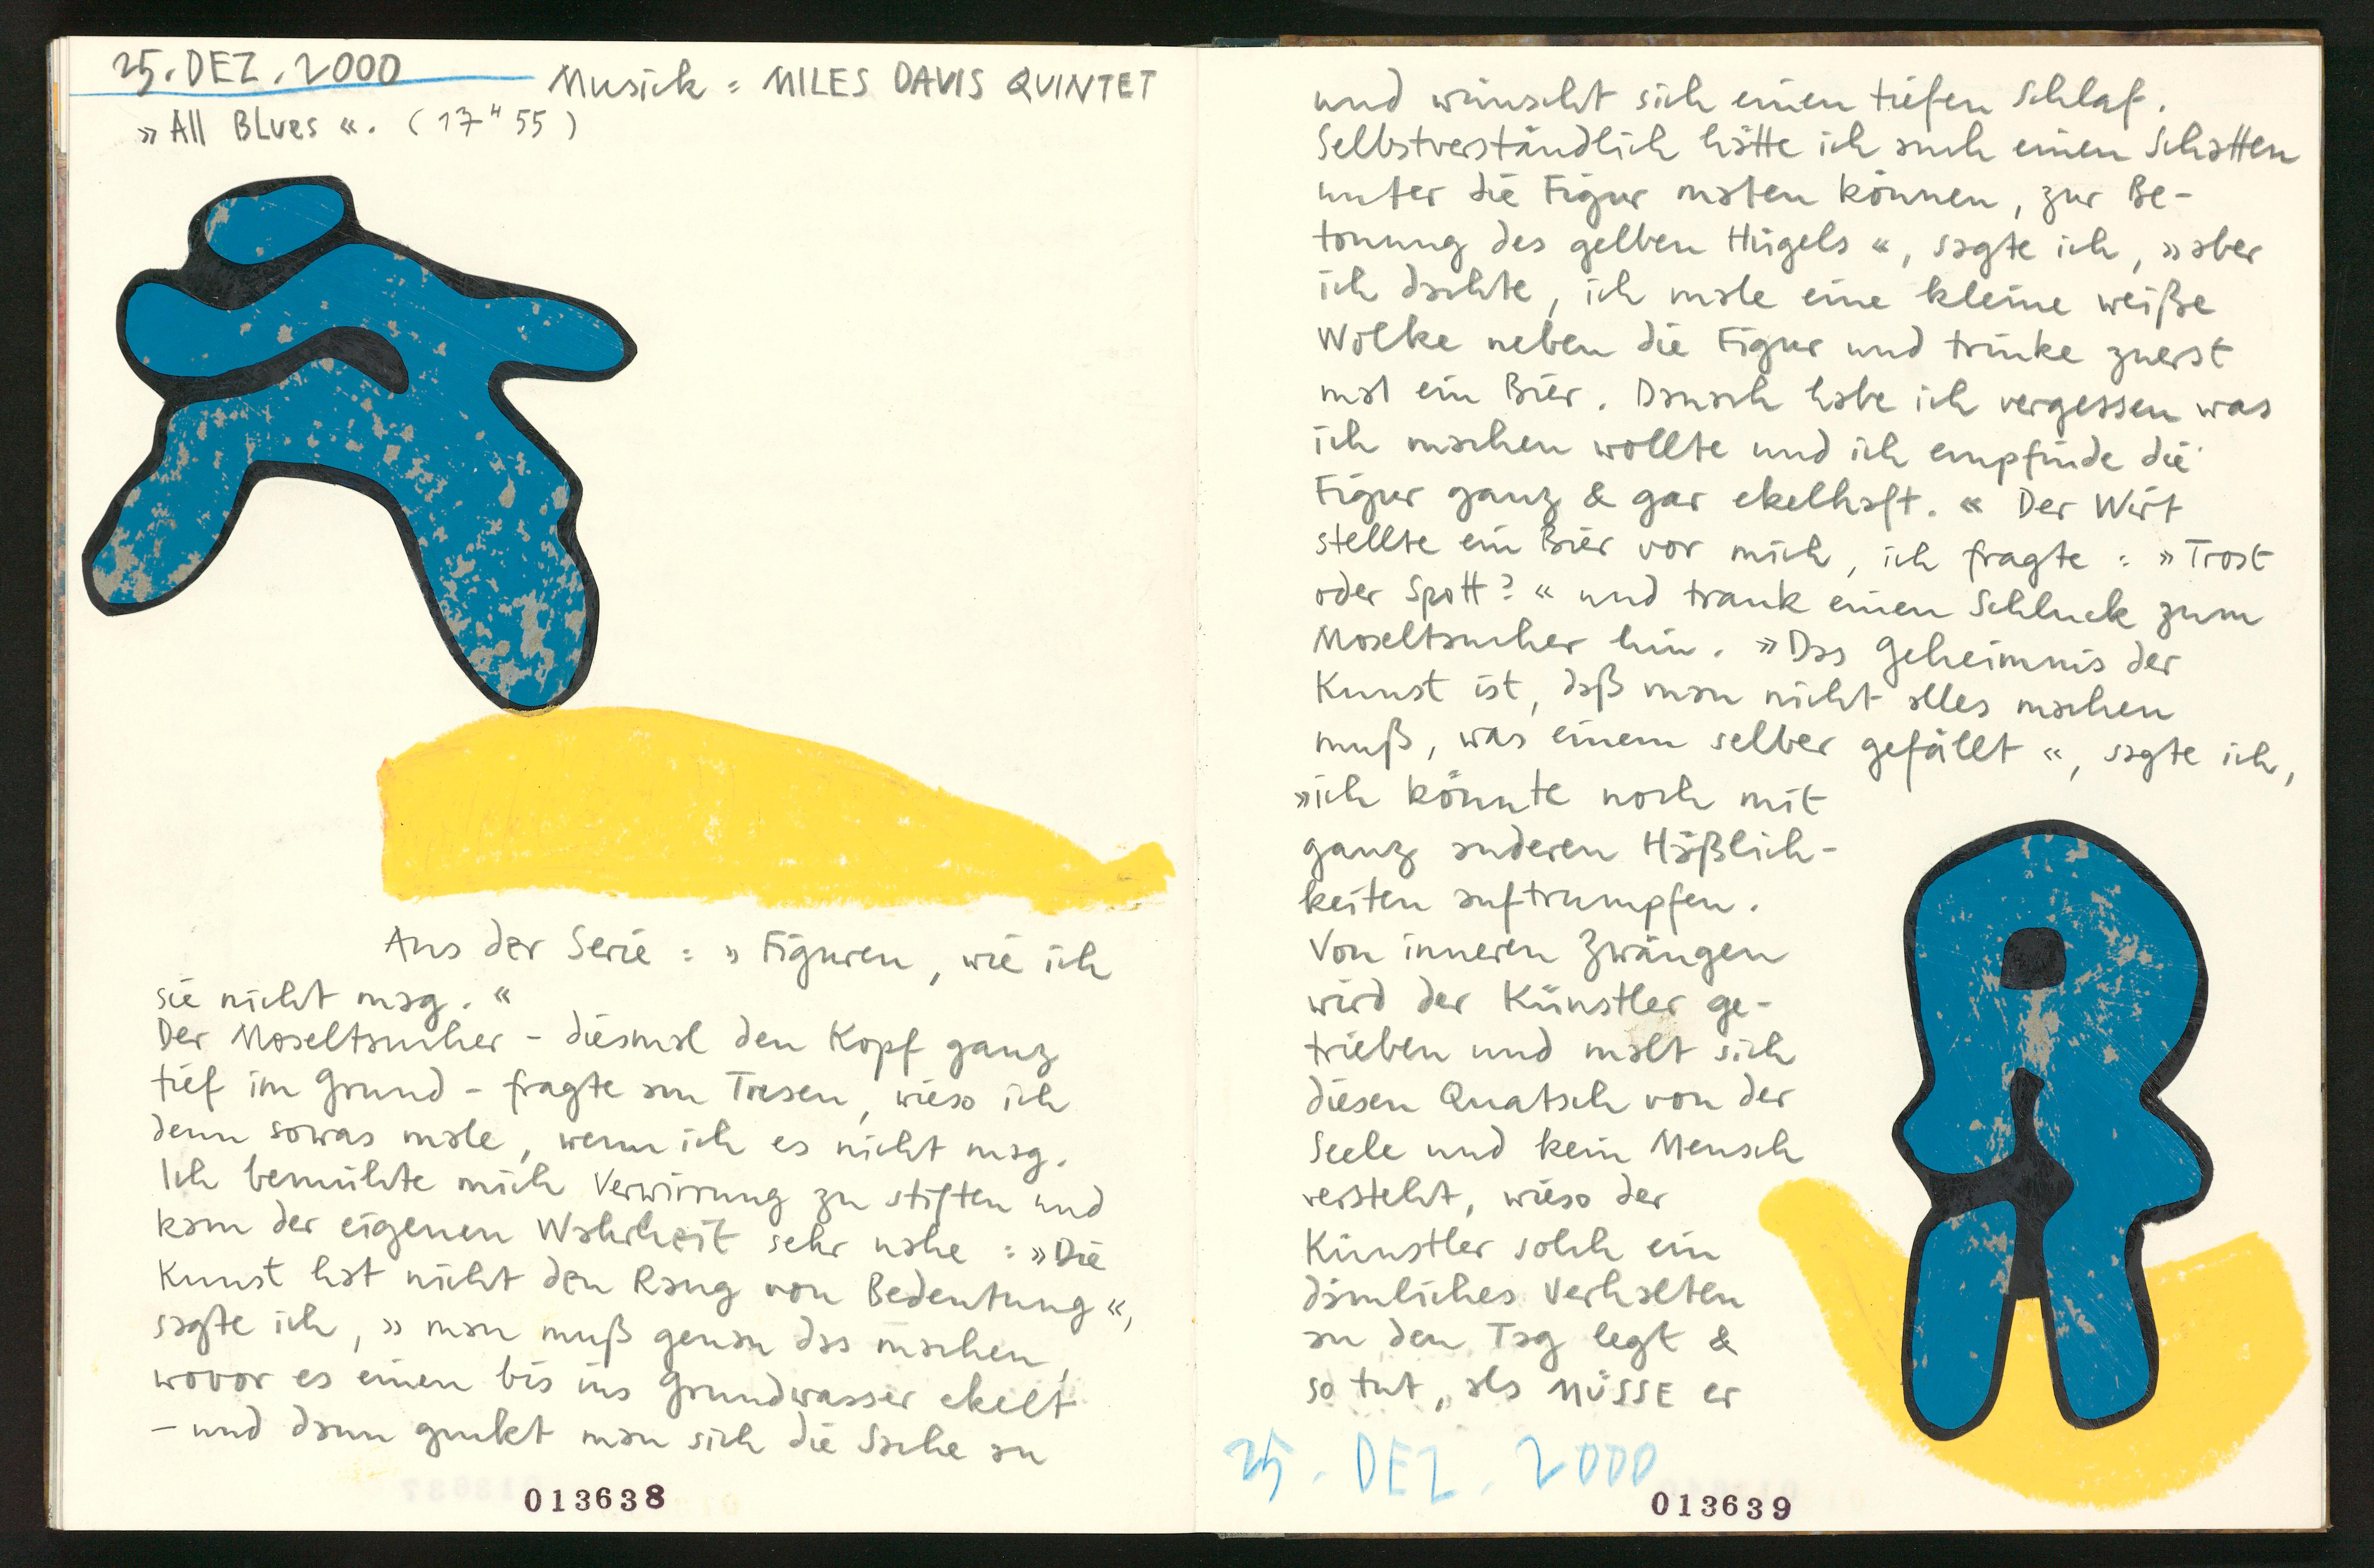 25. DEZ. 2000
Musick : MILES DAVIS QUINTET
» All BLues «. ( 17" 55 )
Aus der Serie : » Figuren, wie ich
sie nicht mag. «
Der Moseltaucher – diesmal den Kopf ganz
tief im Grund – fragte am Tresen, wieso ich
denn sowas male, wenn ich es nicht mag.
Ich bemühte mich Verwirrung zu stiften und
kam der eigenen Wahrheit sehr nahe : » Die
Kunst hat nicht den Rang von Bedeutung «,
sagte ich, » man muß genau das machen,
wovor es einen bis ins Grundwasser ekelt
– und dann guckt man sich die Sache an
013638
und wünscht sich einen tiefen Schlaf.
Selbstverständlich hätte ich auch einen Schatten
unter die Figur malen können, zur Be-
tonung des gelben Hügels «, sagte ich, » aber
ich dachte, ich male eine kleine weiße
Wolke neben die Figur und trinke zuerst
mal ein Bier. Danach habe ich vergessen was
ich machen wollte und ich empfinde die
Figur ganz & gar ekelhaft. « Der Wirt
stellte ein Bier vor mich, ich fragte : » Trost
oder Spott? « und trank einen Schluck zum
Moseltaucher hin. » Das Geheimnis der
Kunst ist, daß man nicht alles machen
muß, was einem selber gefällt «, sagte ich,
» ich könnte noch mit
ganz anderen Häßlich-
keiten auftrumpfen.
Von inneren Zwängen
wird der Künstler ge-
trieben und malt sich
diesen Quatsch von der
Seele und kein Mensch
versteht, wieso der
Künstler solch ein
dämliches Verhalten
an den Tag legt &
so tut, als MÜSSE er
25. DEZ. 2000
013639